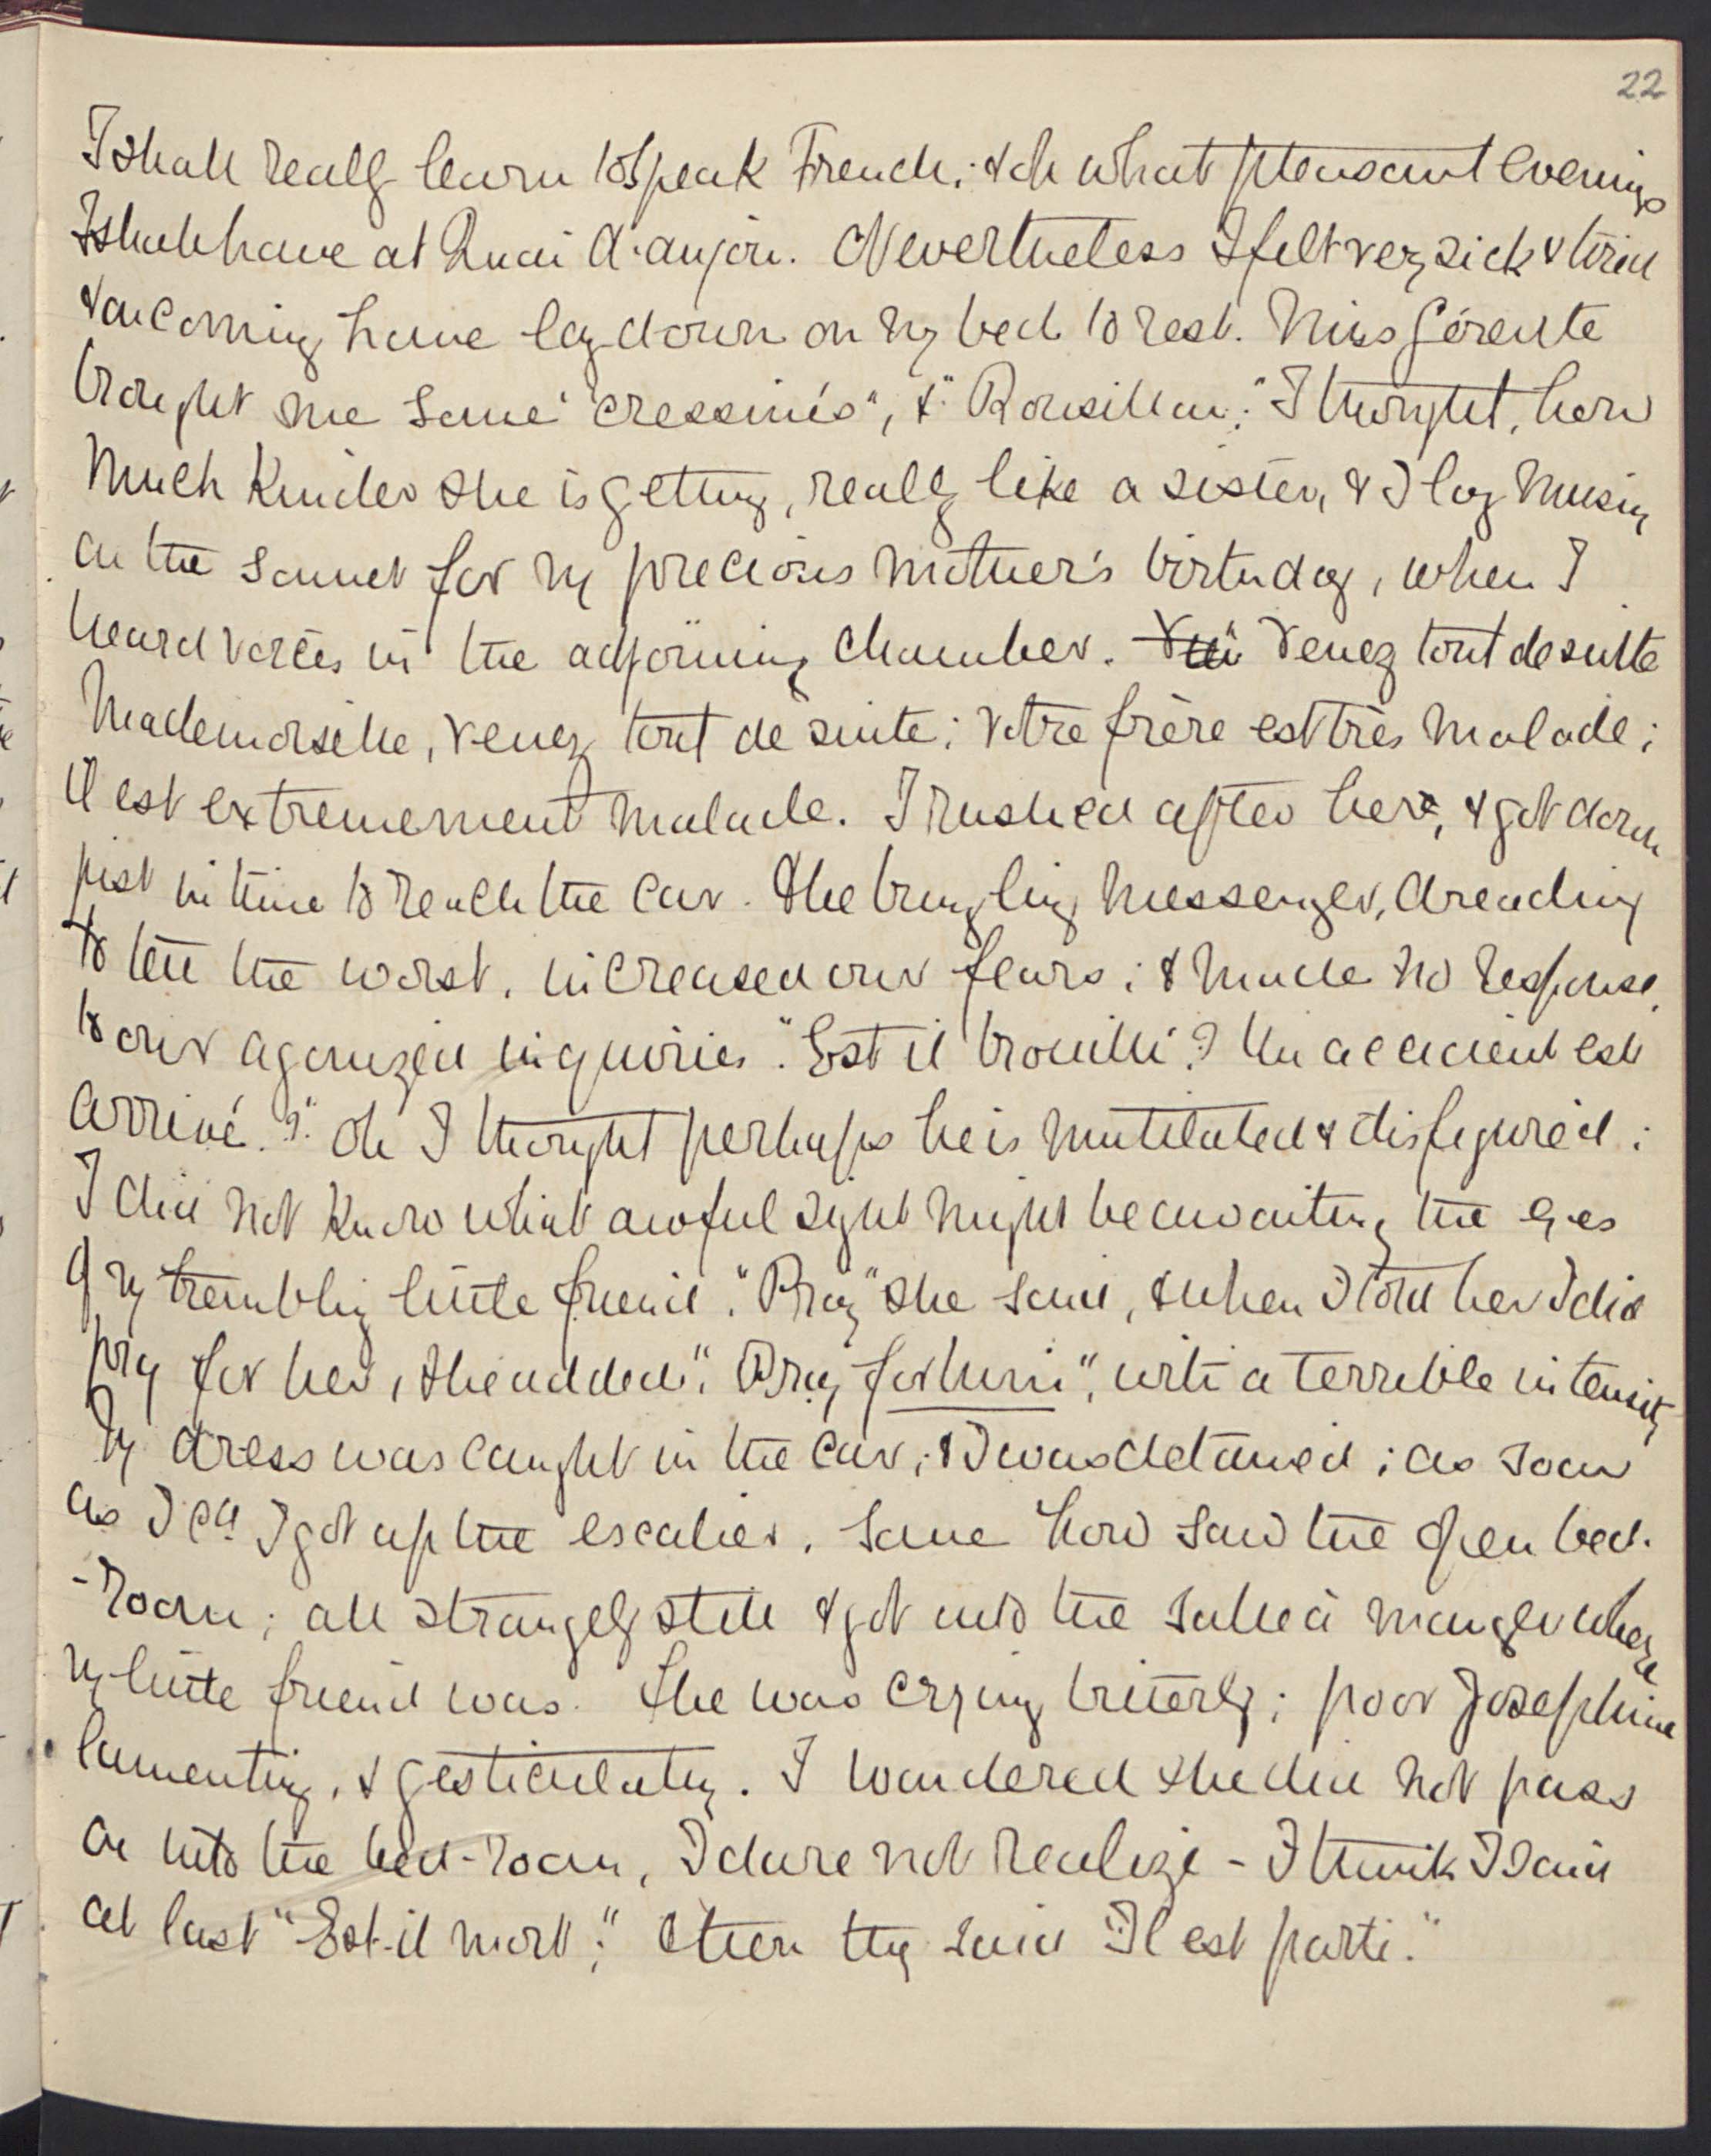 22
I shall really learn to speak French; & oh what pleasant evenings
I shall have at Quai d'anjou. Nevertheless I felt very sick & tired
& on coming home lay down on my bed to rest. Miss Gérente
brought me some "cressinis", & "Rousillon;" I thought, how
much kinder she is getting, really like a sister, & I lay musing
on the sonnet for my precious mother's birthday, when I
heard voices in the adjoining chamber. Venez tout de suite
Mademoiselle, venez tout de suite; votre frère est très malade;
il est extremement malade. I rushed after her, & got down
just in time to reach the car. The bungling messenger, dreading
to tell the worst, increased our fears; & made no response,
to our agonized inquiries. "Est il brouilli? Un accident est
arrivé?" Oh I thought perhaps he is mutilated & disfigured;
I did not know what awful sight might be awaiting the eyes
of my trembling little friend. "Pray" she said, & when I told her I did
pray for her, she added, "Pray for him", with a terrible intensity
My dress was caught in the car; & I was detained; as soon
as I cd I got up the escalier, some how saw the open bed-
-room; all strangely still & got into the salle à manger where
my little friend was. She was crying bitterly; poor Josephine
lamenting, & gesticulating. I wondered she did not pass
on into the bed-room, I dare not realize - I think I said
at last "Est-il mort;" Then they said "Il est parti."